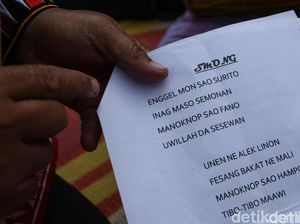 SMONG
ENGGEL MON SAO SURITO
INAG MASO SEMONAN
MANOKNOP SAO FANO
UWILLAH DA SESEWAN
UNEN NE ALEK LINON
FESANG BAKAT NE MALI
MANOKNOP SAO HAMPO
TIBO-TIBO MAAWI
detik